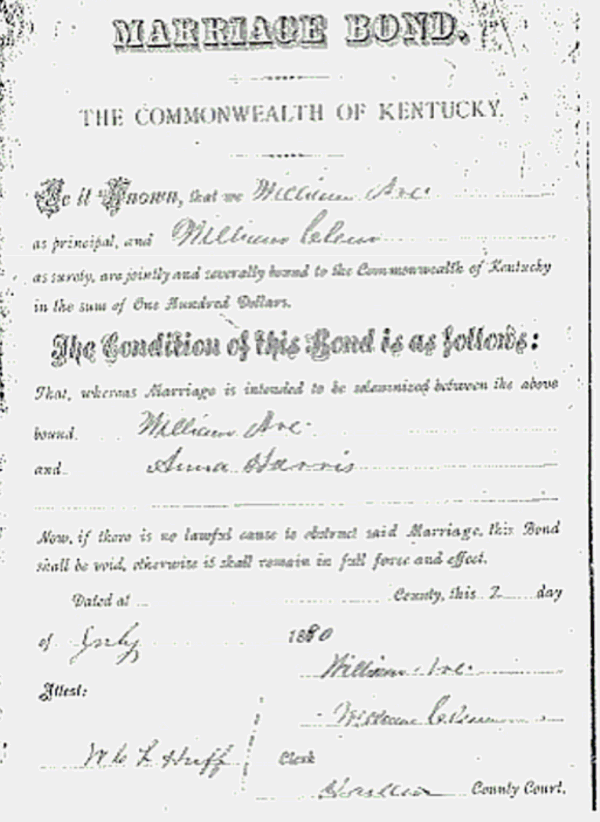 MARRIAGE BOND.
THE COMMONWEALTH OF KENTUCKY.
Be it Known, that we William
as principal, and William
as surety, are jointly and severally bound to the Commonwealth of Kentucky
in the sum of One Hundred Dollars.
The Condition of this Bond is as follows:
That, whereas Marriage is intended to be solemnized between the above
bound William
and Anna Harris
Now, if there is no lawful cause to obstruct said Marriage, this Bond
shall be void, otherwise it shall remain in full force and effect.
Dated at County, this 2 day
of July 1880
William
Attest:
William
Huff Clerk
County Court.